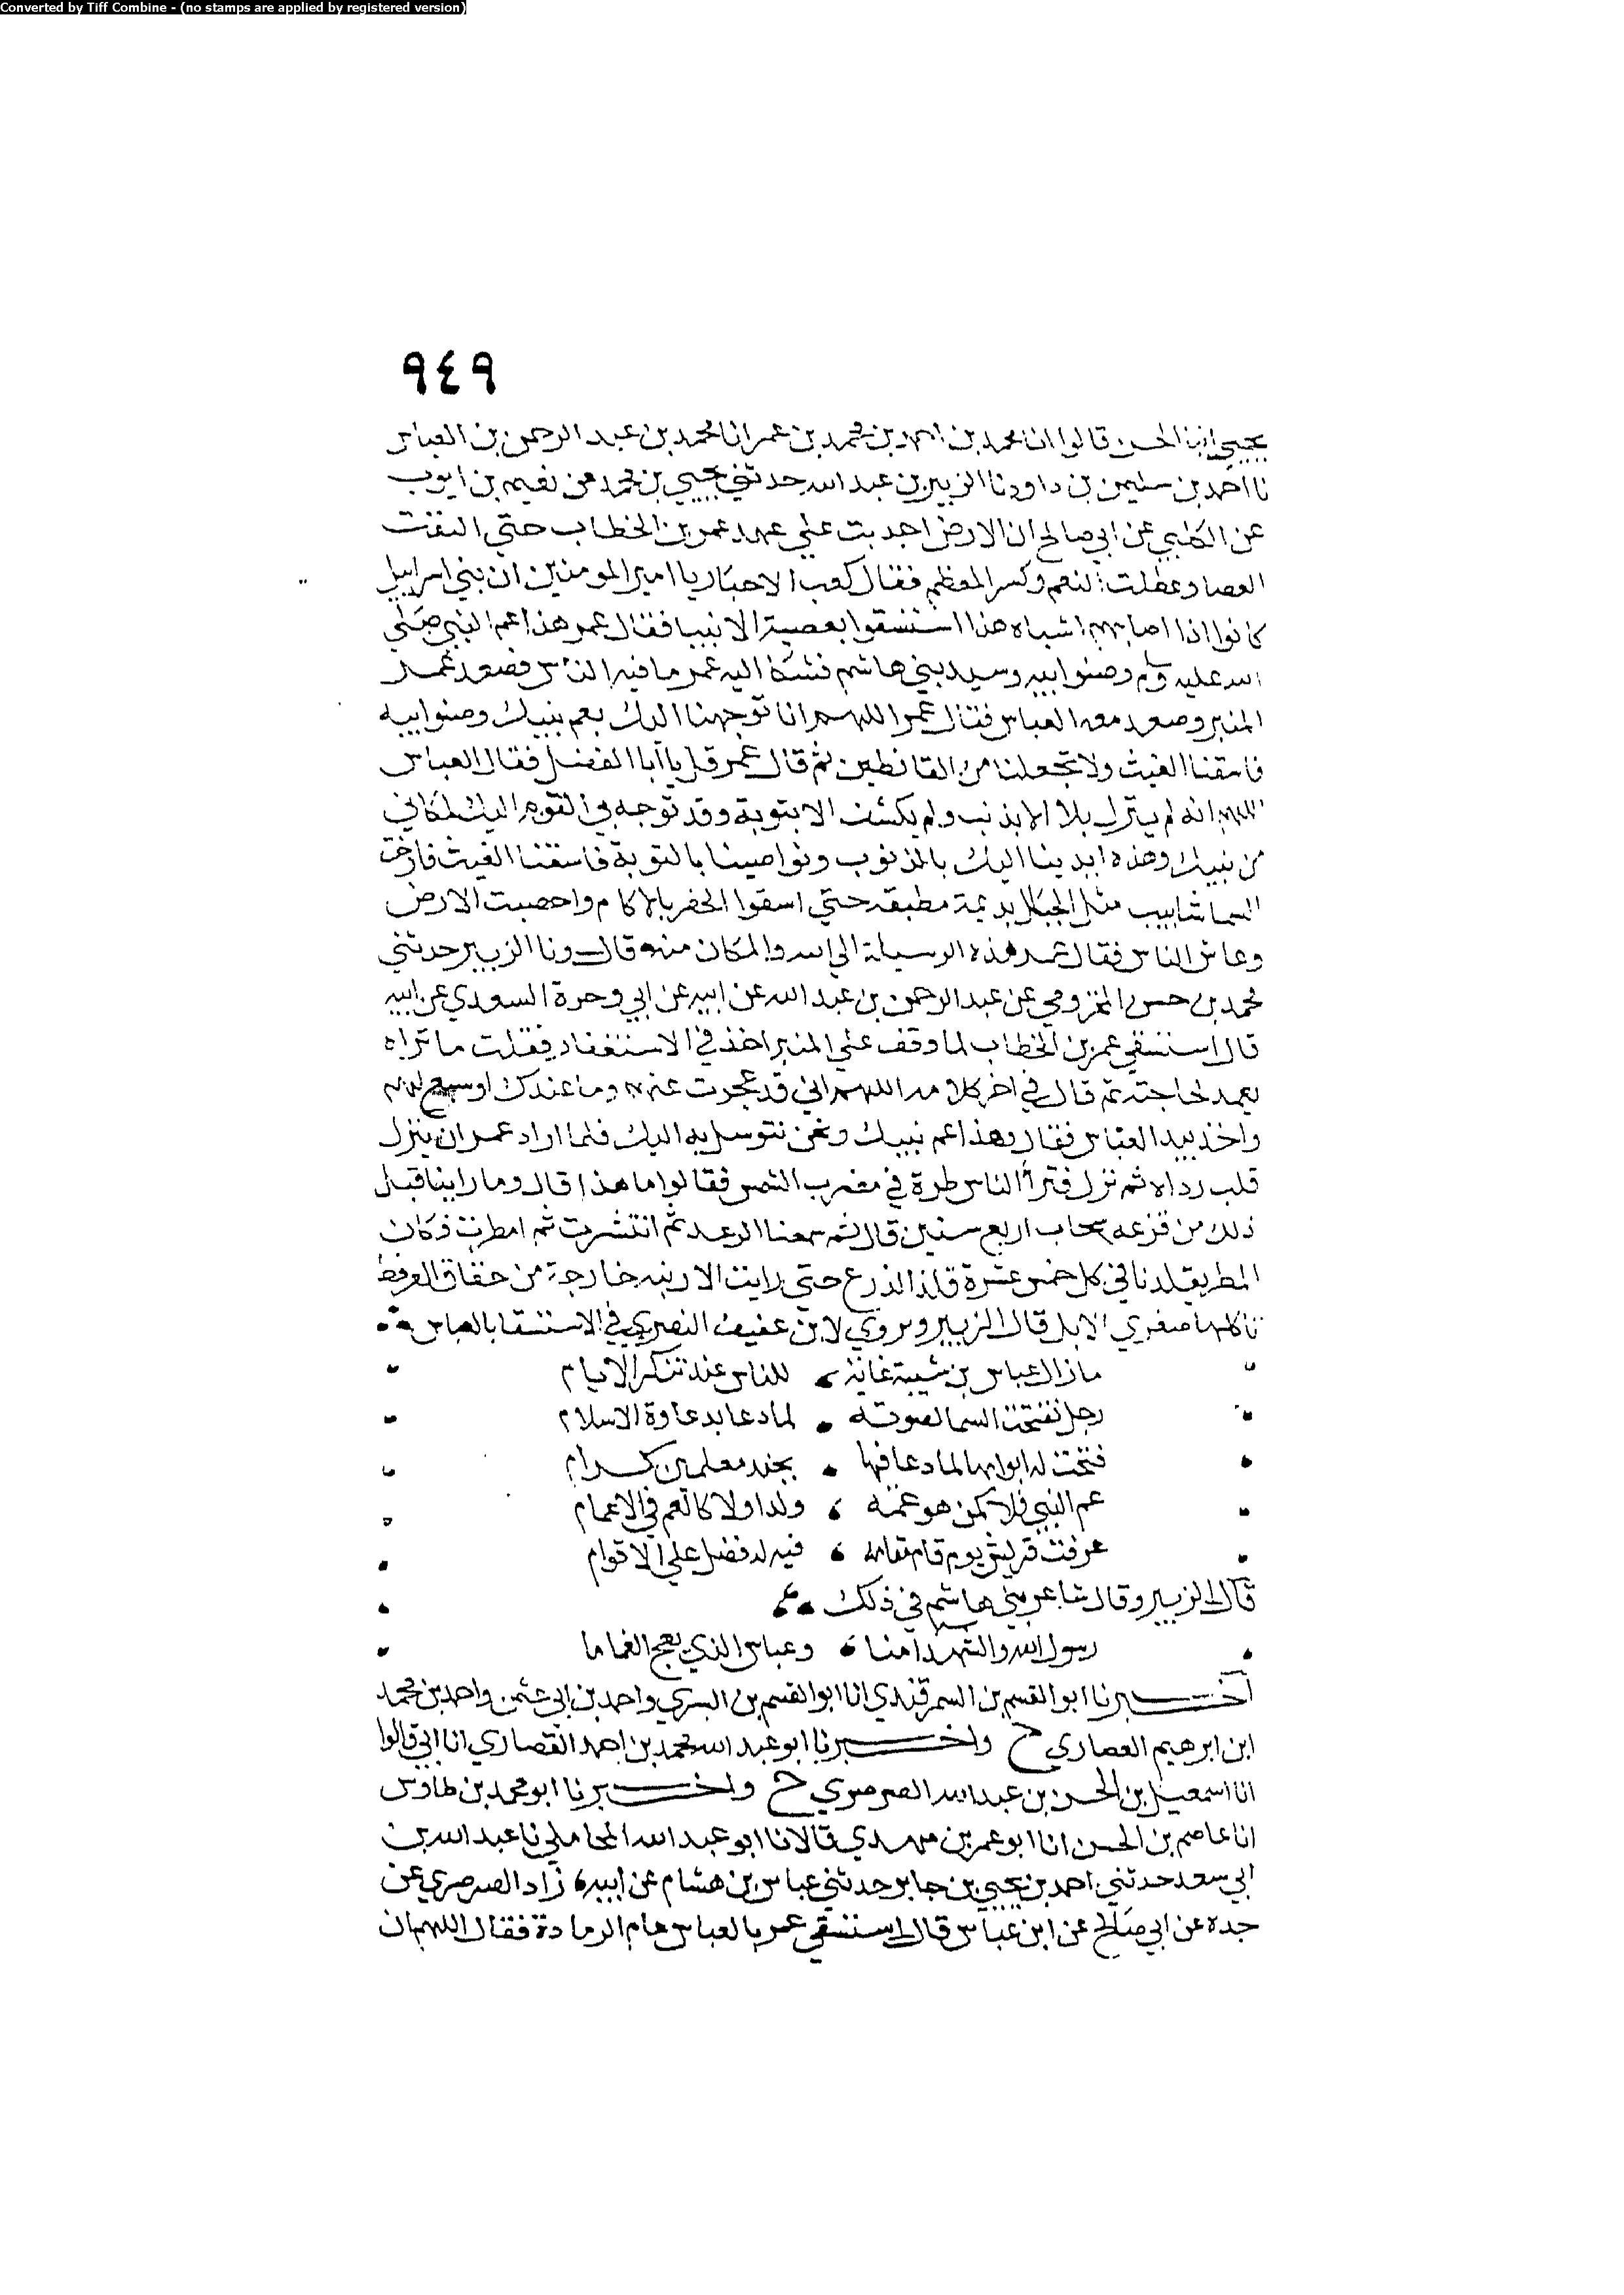 Converted by Tiff Combine - (no stamps are applied by registered version)
٩٤٩
يحيي ابنا الحسن قالوا انا محمد بن احمد بن محمد بن عمر انا محمد بن عبد الرحمن بن العباس
نا احمد بن سليمن بن داود نا الزبير بن عبد الله حدثني يحيي بن محمد عن نعيم بن ايوب
عن الكلبي عن ابي صالح ان الارض اجدبت علي عهد عمر بن الخطاب حتي التقت
العصا وعطلت النعم وكسر العظم فقال كعب الاحبار يا امير المومنين ان بني اسراييل
كانوا اذا اصابهم اشباه هذا استسقوا بعصبة الانبيا فقال عمر هذا عم النبي صلي
الله عليه وسلم وصنو ابيه وسيد بني هاشم فشكا اليه عمر ما فيه الناس فصعد عمر
المنبر وصعد معه العباس فقال عمر اللهم انا توجهنا اليك بعم نبيك وصنو ابيه
فاسقنا الغيث ولا تجعلنا من القانطين ثم قال عمر قل يا ابا الفضل فقال العباس
اللهم انه لم ينزل بلا الا بذنب ولم يكشف الا بتوبة وقد توجه بي القوم اليك لمكاني
من نبيك وهذه ايدينا اليك بالذنوب ونواصينا بالتوبة فاسقنا الغيث فارخت
السما شابيب مثل الجبال بديمة مطبقه حتي اسقوا الحفر بالاكام واخصبت الارض
وعاش الناس فقال عمر هذه الوسيلة الي الله والمكان منه قال ونا الزبير حدثني
محمد بن حسن المخزومي عن عبد الرحمن بن عبد الله عن ابيه عن ابي وجرة السعدي عن ابيه
قال استسقي عمر بن الخطاب لما وقف علي المنبر اخذ في الاستغفار فقلت ما تراه
يعمد لحاجته ثم قال في اخر كلامه اللهم اني قد عجزت عنهم وما عندك اوسع لهم
واخذ بيد العباس فقال وهذا عم نبيك ونحن نتوسل به اليك فلما اراد عمر ان ينزل
قلب رداه ثم نزل فترأا الناس طرة في مغرب الشمس فقالوا ما هذا قال وما راينا قبل
ذلك من قزعه سحاب اربع سنين قال ثم سمعنا الرعد ثم انتشرت ثم امطرت فكان
المطر يقلدنا في كل خمس عشرة قلد الزرع حتي رايت الارنبه خارجة من حقاق العرفط
تاكلها صغري الابل قال الزبير ويروي لابن عفيف النصري في الاستسقا بالعباس
ما زال عباس بن شيبة غاية للناس عند تنكر الايام
رجل تفتحت السما لصوته لما دعا بدعاوة الاسلام
فتحت له ابوابها لما دعا فيها بجند معلمين كرام
عم النبي فلا كمن هو عمه ولدا ولا كالعم في الاعمام
عرفت قريش يوم قام مقامه فيه له فضل علي الاقوام
قال الزبير وقال شاعر بني هاشم في ذلك
رسول الله والشهدا منا وعباس الذي بعج الغماما
اخبرنا ابو القسم بن السمرقندي انا ابو القسم بن البسري واحمد بن ابي عثمن واحمد بن محمد
ابن ابرهيم القصاري ح واخبرنا ابو عبد الله محمد بن احمد القصاري انا ابي قالوا
انا اسمعيل بن الحسن بن عبد الله الصرصري ح واخبرنا ابو محمد بن طاوس
انا عاصم بن الحسن انا ابو عمر بن مهدي قالا نا ابو عبد الله المحاملي نا عبد الله بن
ابي سعد حدثني احمد بن يحيي بن جابر حدثني عباس بن هشام عن ابيه زاد الصرصري عن
جده عن ابي صالح عن ابن عباس قال استسقي عمر بالعباس عام الرمادة فقال اللهم ان